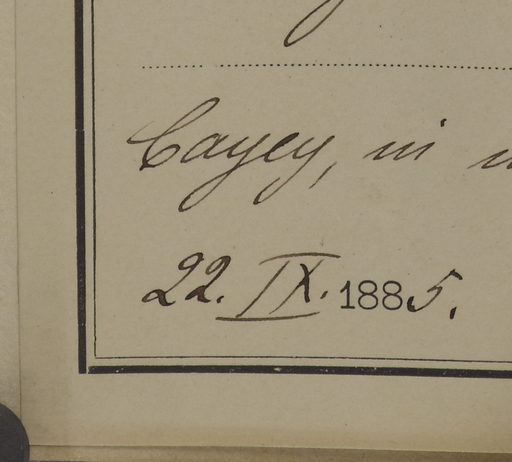 Cayey, in
22. IX. 1885.